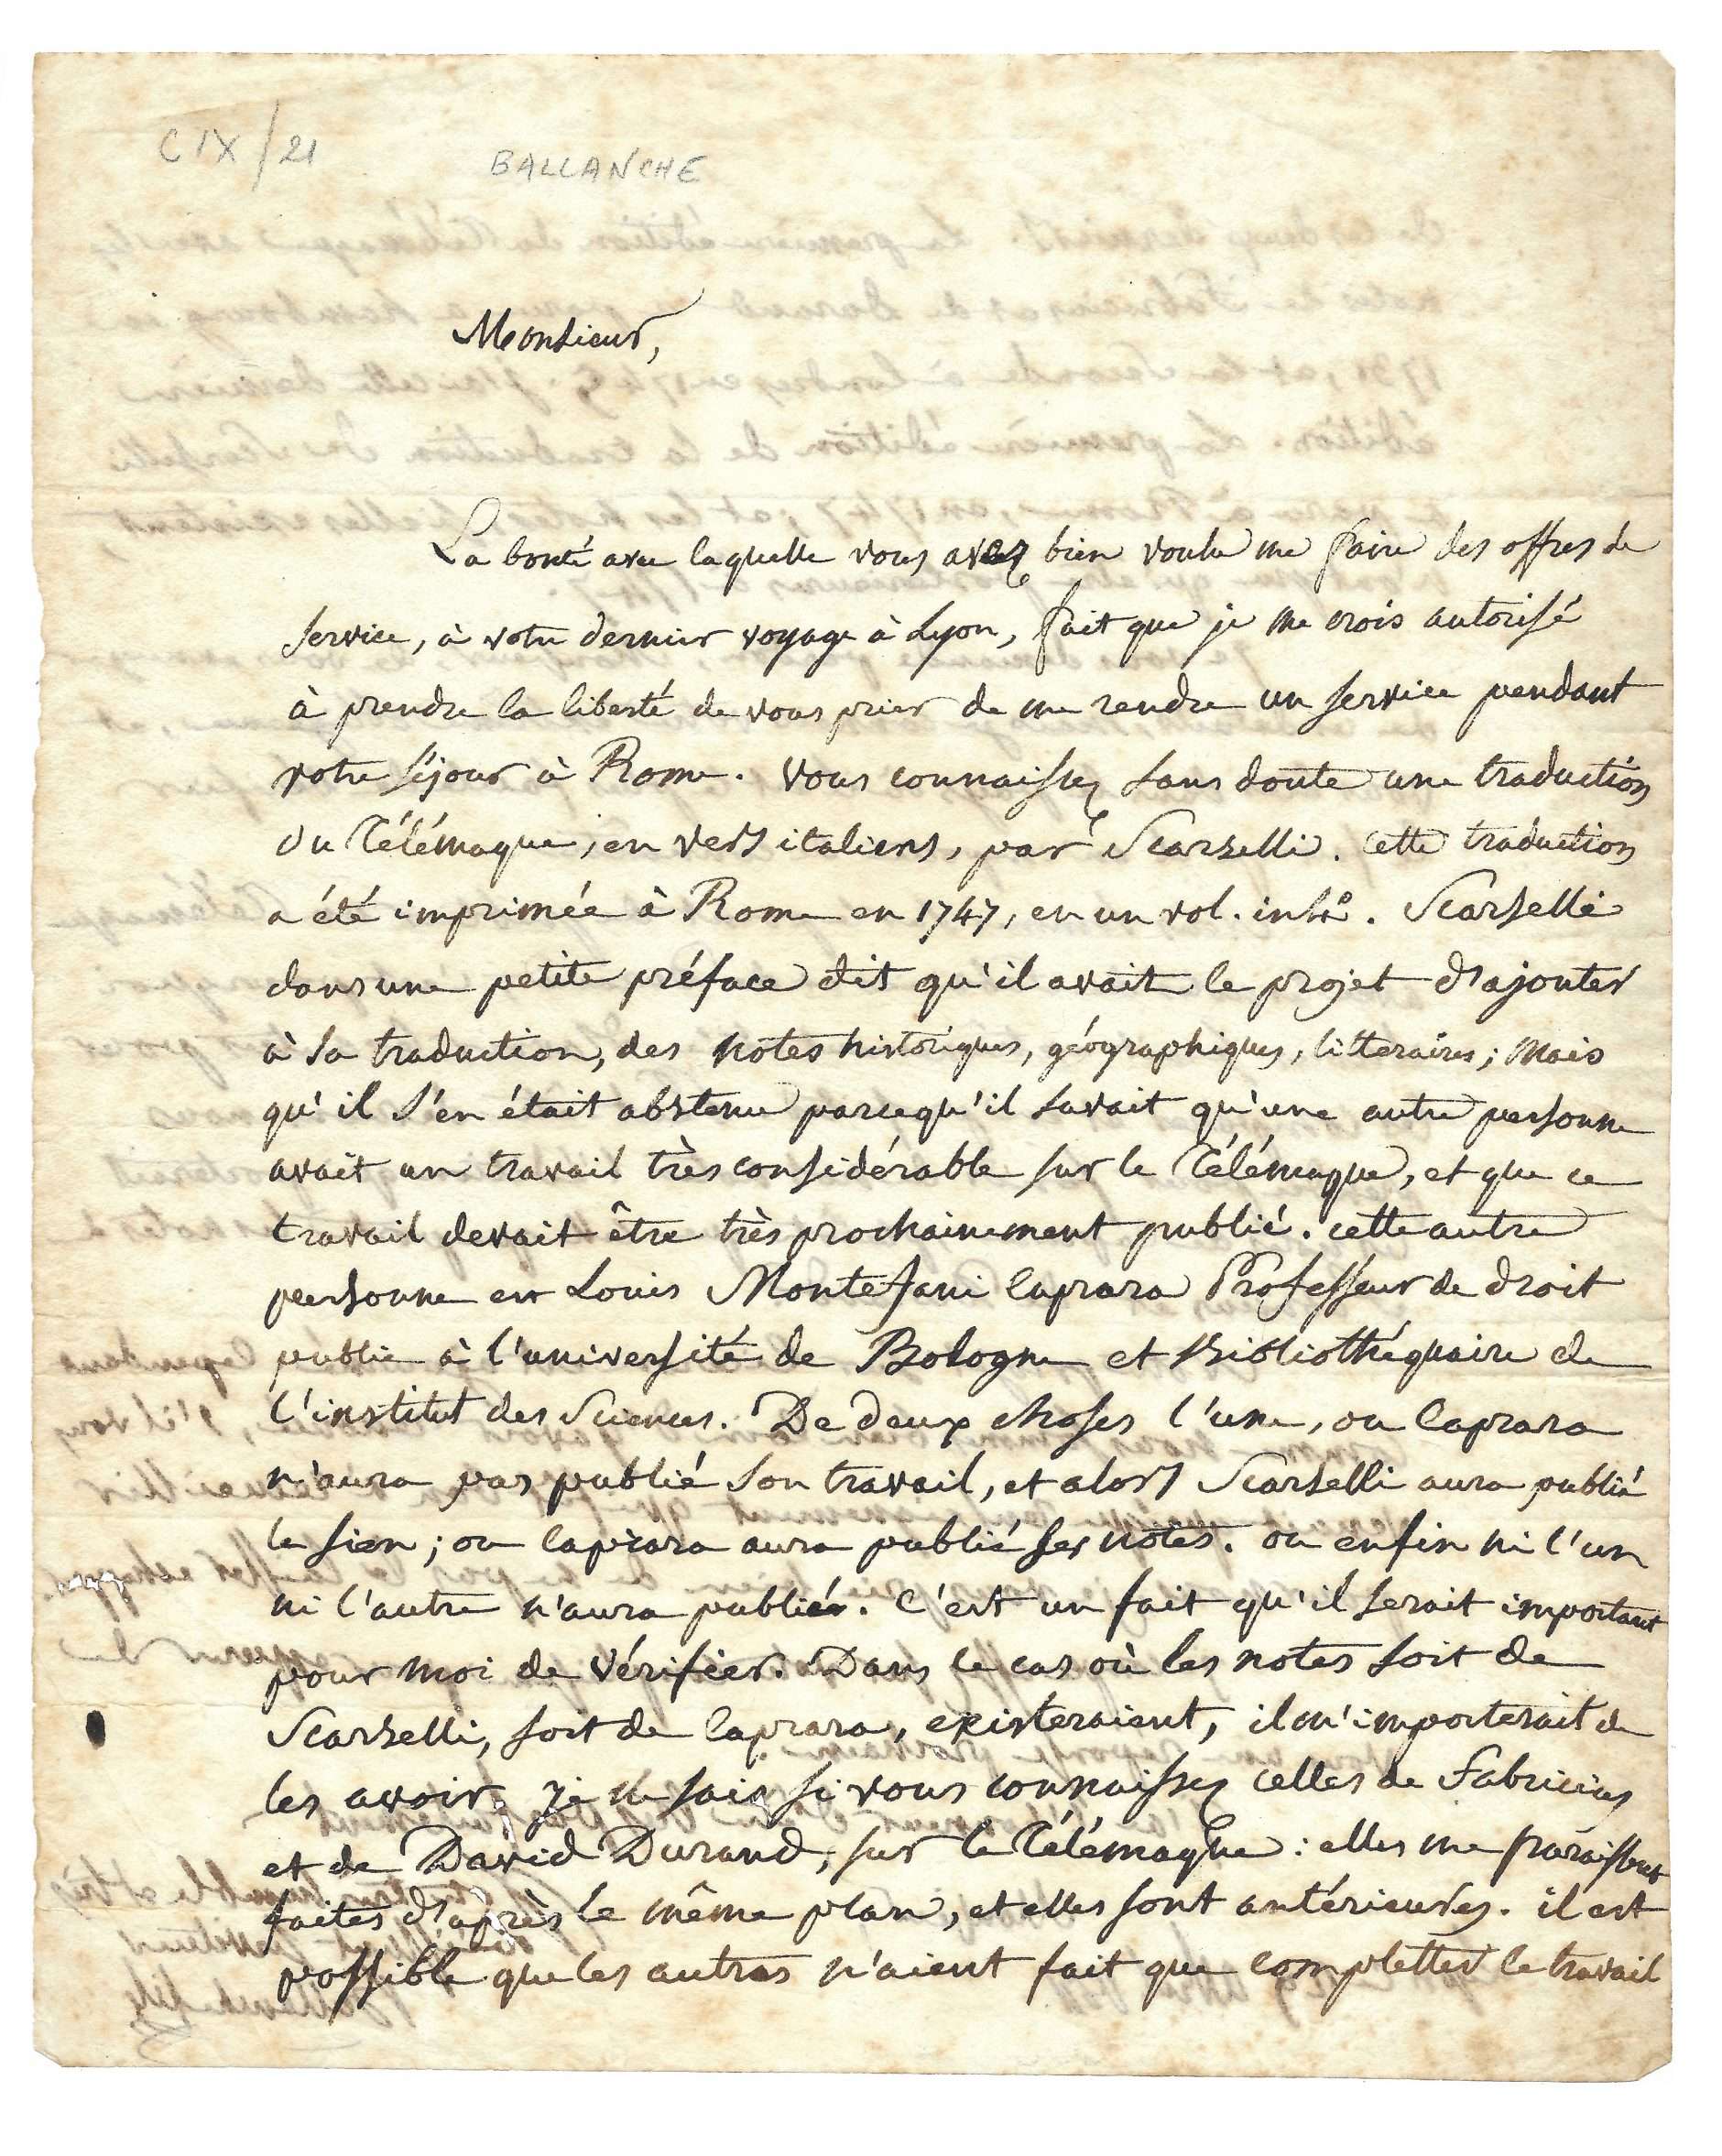 CIX/21
BALLANCHE
Monsieur,
La bonté avec laquelle vous avez bien voulu me faire des offres de
service, à votre dernier voyage à Lyon, fait que je me crois autorisé
à prendre la liberté de vous prier de me rendre un service pendant
votre séjour à Rome. Vous connaissez sans doute une traduction
du Télémaque, en vers italiens, par Scarselli. cette traduction
a été imprimée à Rome en 1747, en un vol. in 4°. Scarselli
dans une petite préface dit qu'il avait le projet d'ajouter
à sa traduction, des notes historiques, géographiques, litteraires; mais
qu'il s'en était abstenu parcequ'il savait qu'une autre personne
avait un travail très considérable sur le Télémaque, et que ce
travail devait être très prochainement publié. cette autre
personne est Louis Montefani Caprara Professeur de droit
public à l'université de Bologne et Bibliothéquaire de
l'institut des Sciences. De deux choses l'une, ou Caprara
n'aura pas publié son travail, et alors Scarselli aura publié
le sien; ou Caprara aura publié ses notes. ou enfin ni l'un
ni l'autre n'aura publié. C'est un fait qu'il serait important
pour moi de vérifier. Dans le cas où les notes soit de
Scarselli, soit de Caprara, existeraient, il m'importerait de
les avoir. je ne sais si vous connaissez celles de Fabricius
et de David Durand, sur le Télémaque: elles me paraissent
faites d'après le même plan, et elles sont antérieures. il est
possible que les autres n'aient fait que completter le travail